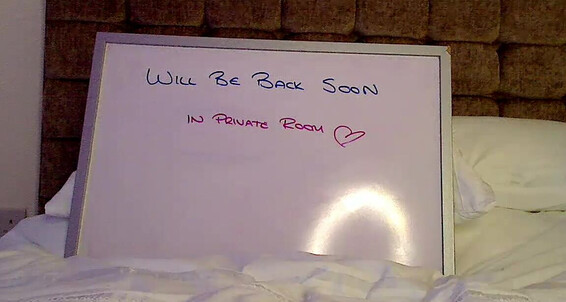 WILL BE BACK SOON
IN PRIVATE ROOM